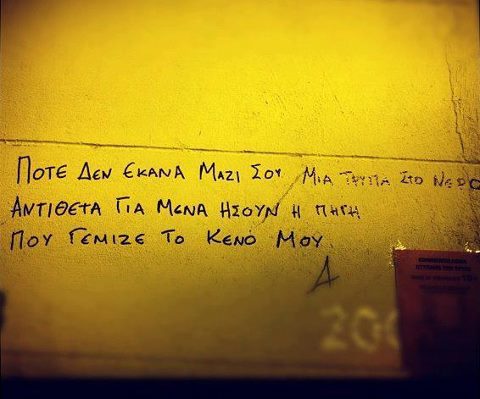 ΠΟΤΕ ΔΕΝ ΕΚΑΝΑ ΜΑΖΙ ΣΟΥ ΜΙΑ ΤΡΥΠΑ ΣΤΟ ΝΕΡΟ
ΑΝΤΙΘΕΤΑ ΓΙΑ ΜΕΝΑ ΗΣΟΥΝ Η ΠΗΓΗ
ΠΟΥ ΓΕΜΙΖΕ ΤΟ ΚΕΝΟ ΜΟΥ
Δ
200